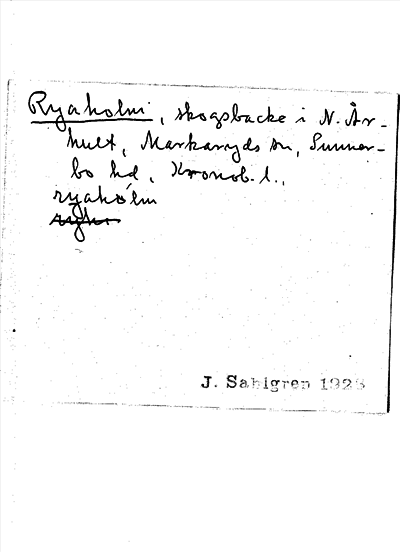 Ryaholm, skogsbacke i N. År-
hult, Markaryds sn, Sunner-
bo hd, Kronob. l.,
ryahólm
J. Sahlgren 1923